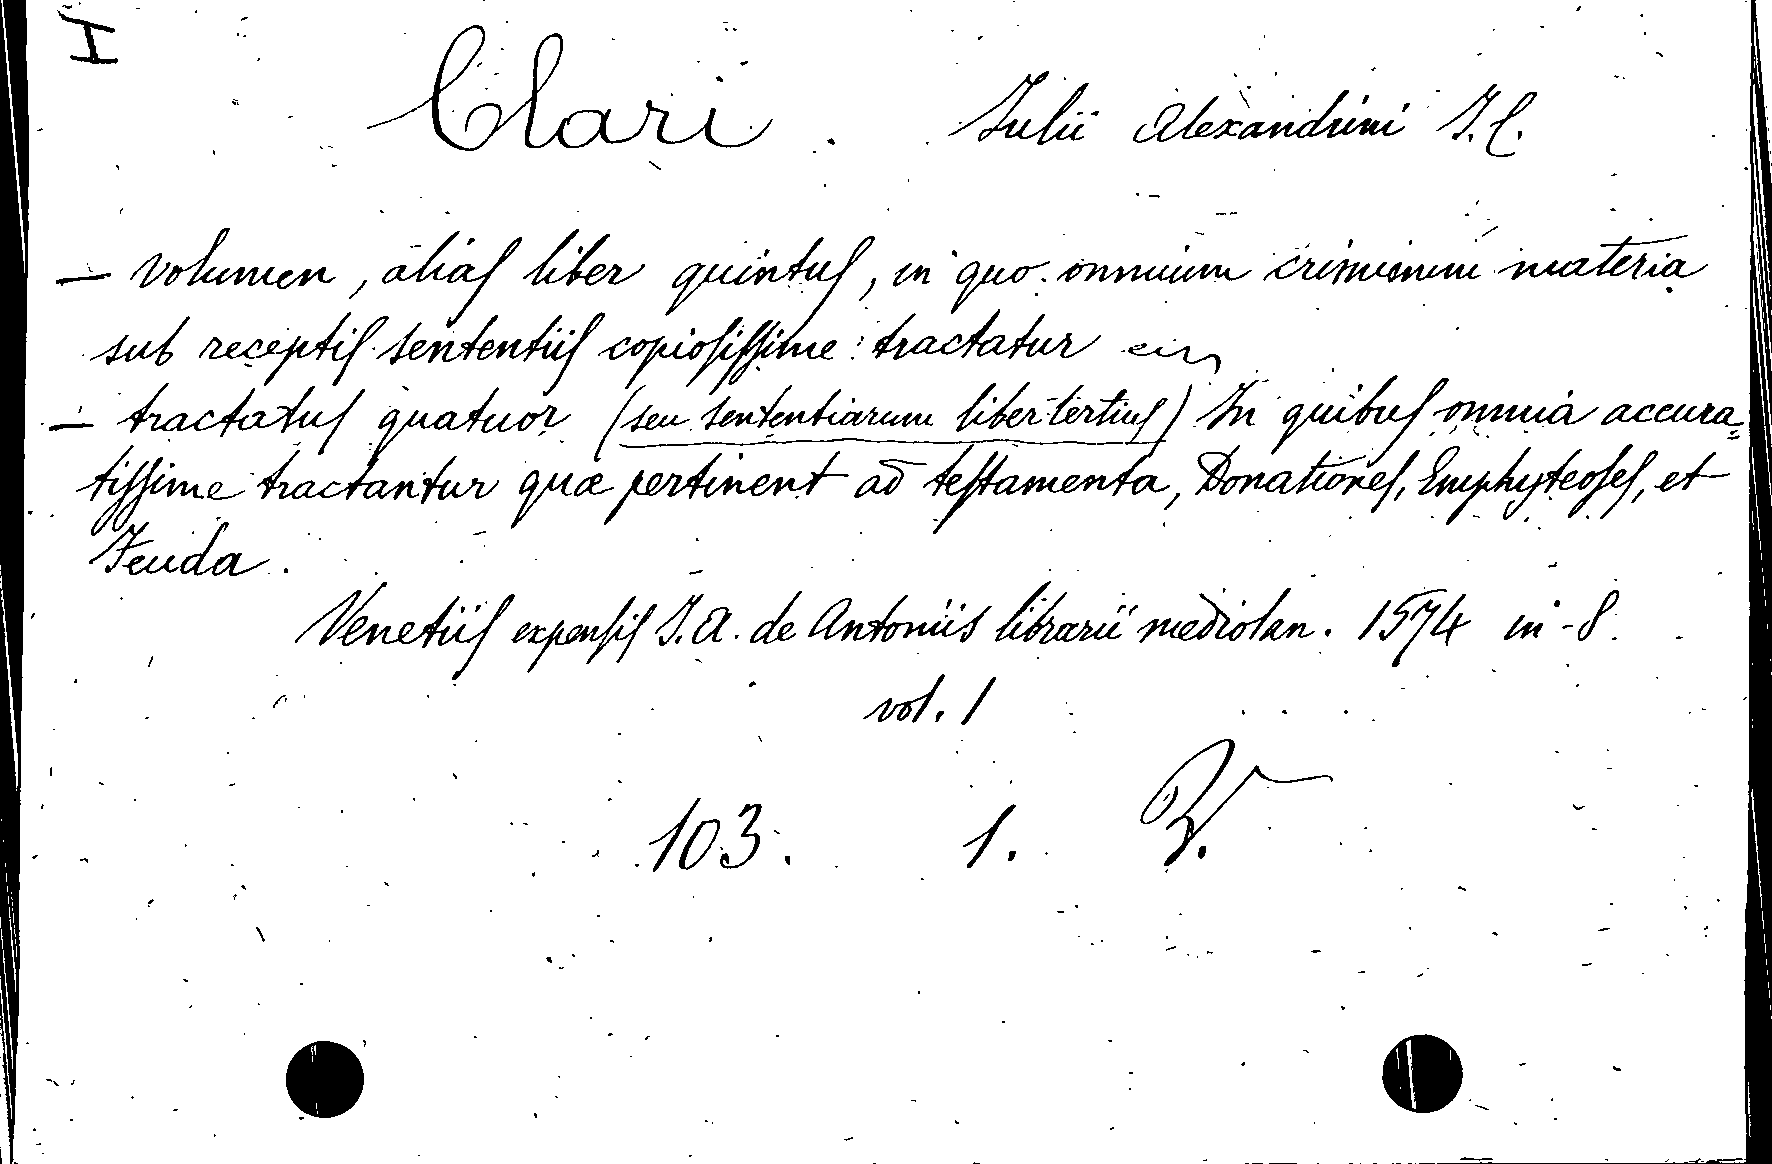 I
Clari. Julii Alexandrini J. C.
— Volumen, aliaſ liber quintuſ, in quo omnium criminum materia
sub receptiſ sententiiſ copioſiſſime tractatur
— tractatuſ quatuor (seu sententiarum liber tertiuſ) In quibuſ omnia accura=
tiſſime tractantur quæ pertinent ad teſtamenta, Donationeſ, Emphyteoſeſ, et
Feuda.
Venetiiſ expenſiſ J. A. de Antoniis librarii mediolan. 1574 in-8.
vol. 1
103. 1.